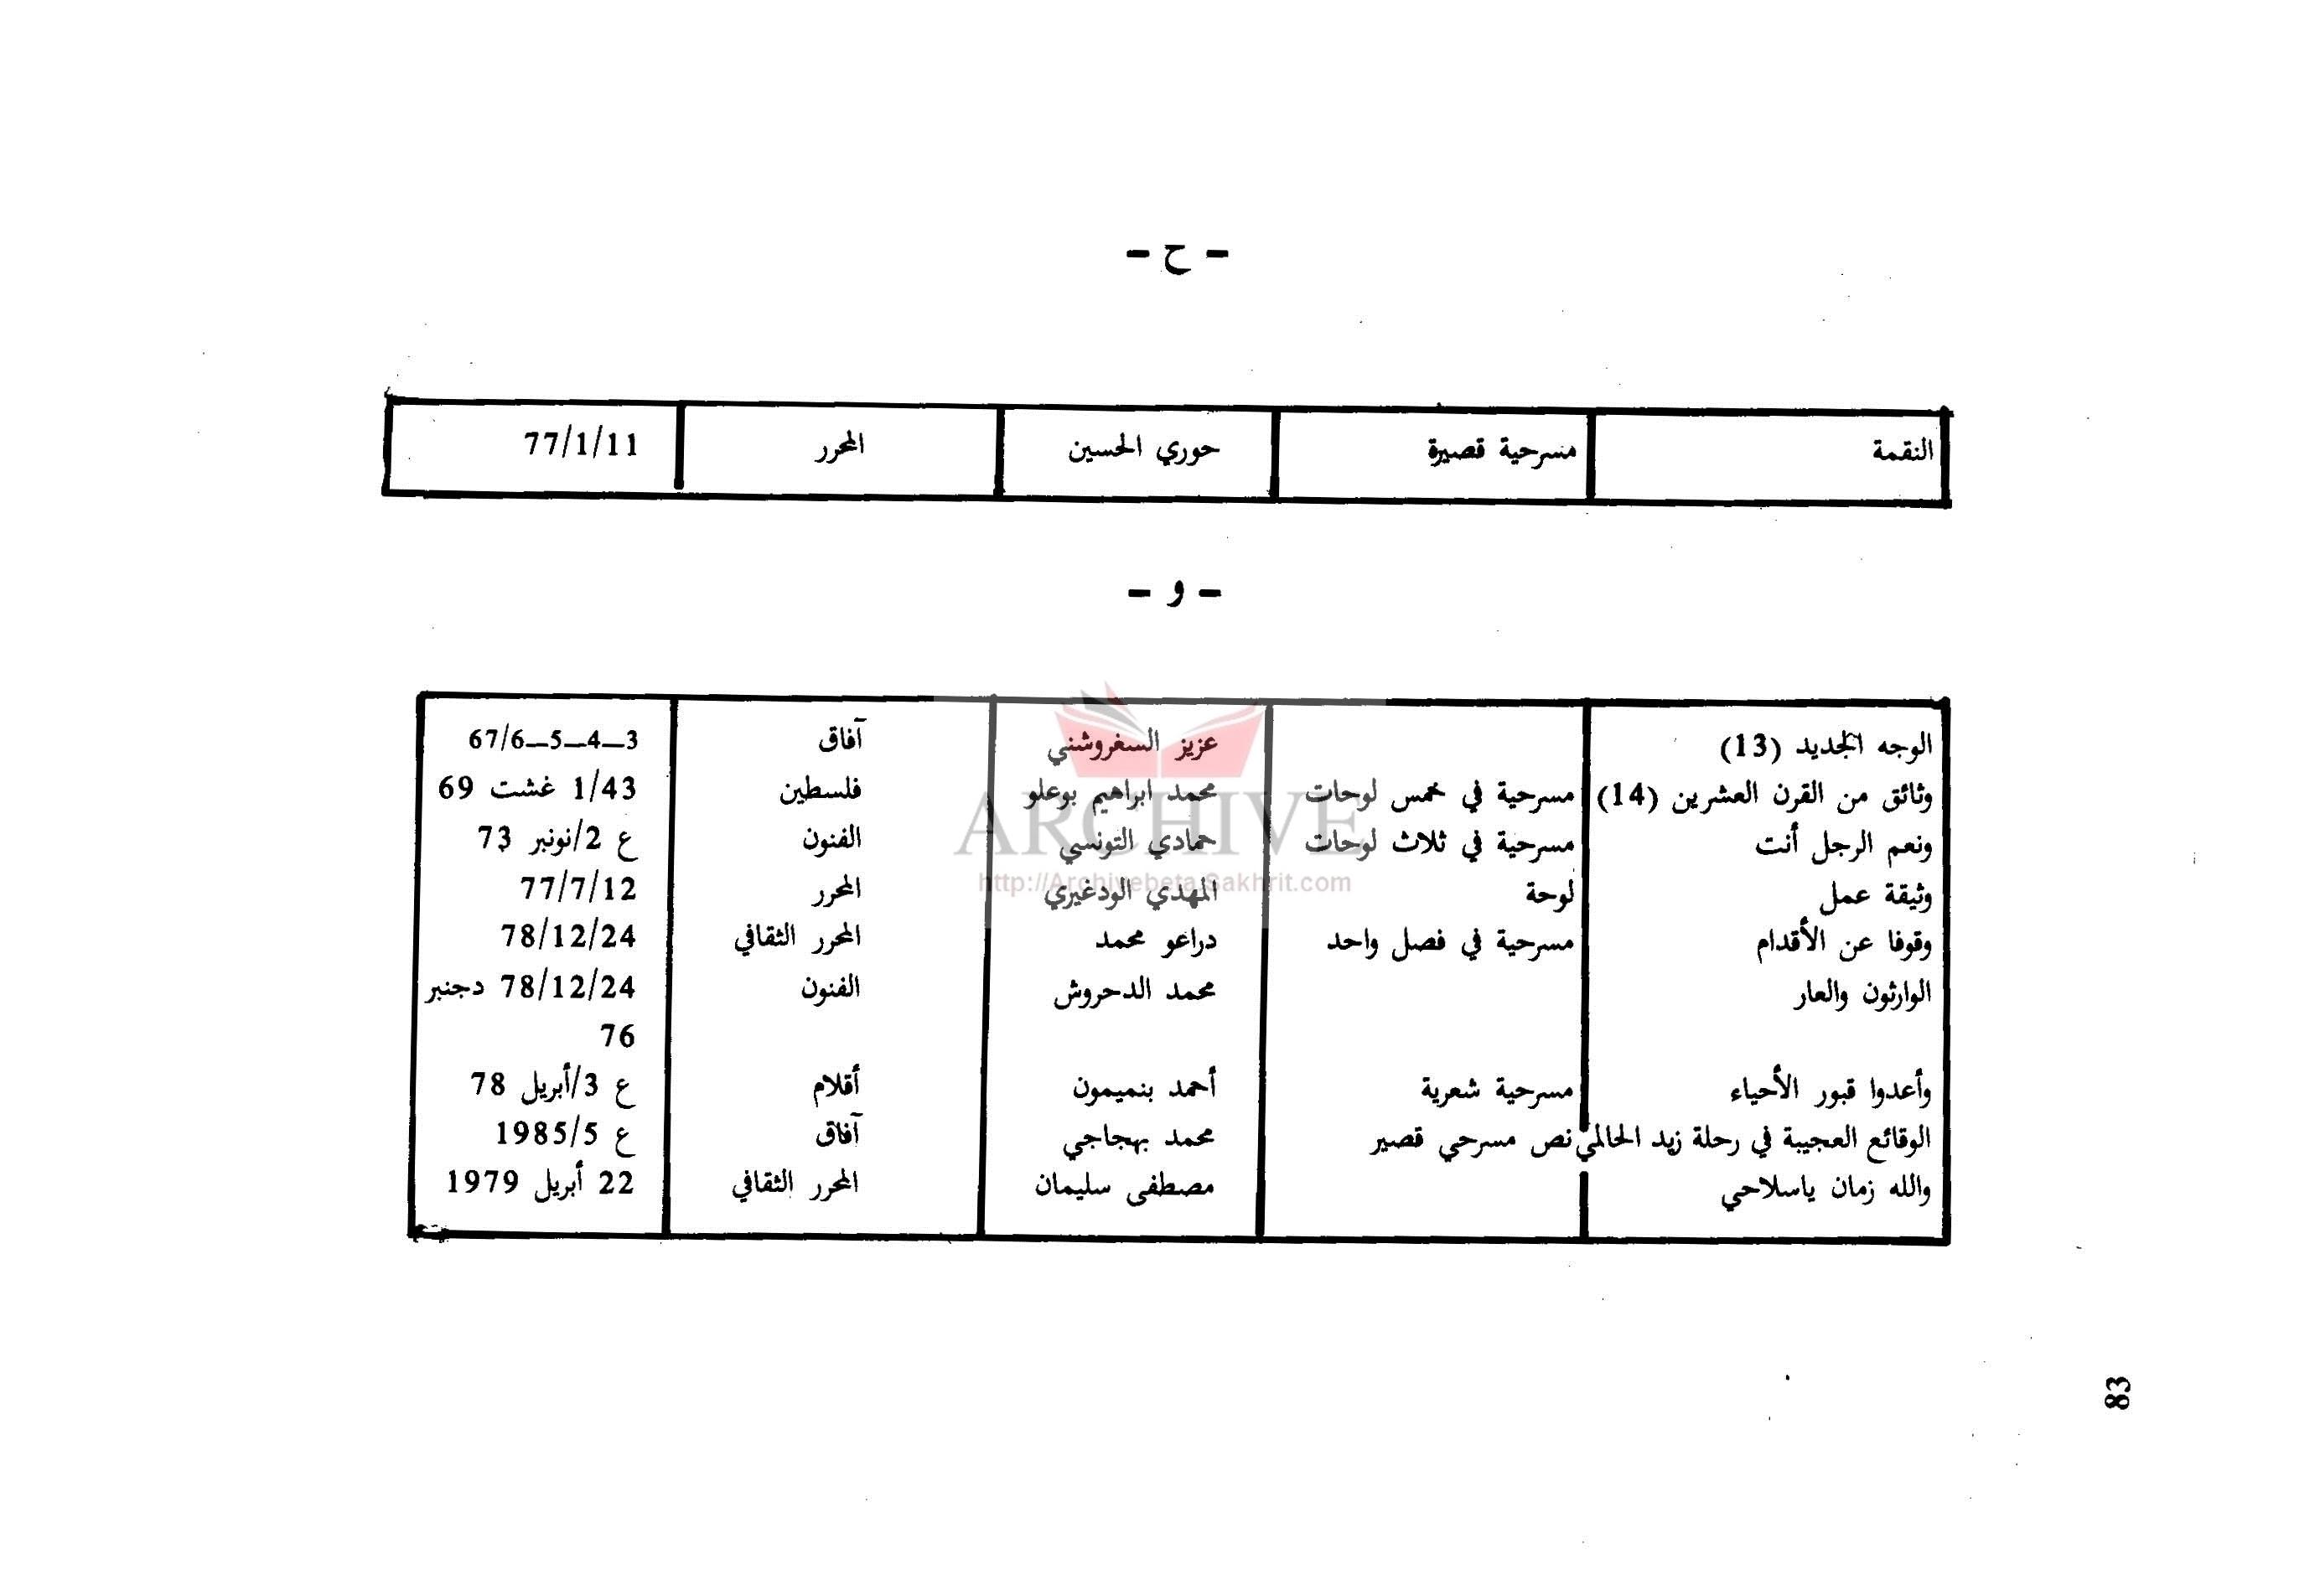 - ح -
النقمة مسرحية قصيرة حوري الحسين المحرر 77/1/11
- و -
الوجه الجديد (13) عزيز السغروشني آفاق 3-4-5-67/6
وثائق من القرن العشرين (14) مسرحية في خمس لوحات محمد ابراهيم بوعلو فلسطين 1/43 غشت 69
ونعم الرجل أنت مسرحية في ثلاث لوحات حمادي التونسي الفنون ع 2/نونبر 73
وثيقة عمل لوحة المهدي الودغيري المحرر 77/7/12
وقوفا عن الأقدام مسرحية في فصل واحد دراعو محمد المحرر الثقافي 78/12/24
الوارثون والعار محمد الدحروش الفنون 78/12/24 دجنبر
76
وأعدوا قبور الأحياء مسرحية شعرية أحمد بنميمون أقلام ع 3/أبريل 78
الوقائع العجيبة في رحلة زيد الحالمي نص مسرحي قصير محمد بهجاجي آفاق ع 1985/5
والله زمان ياسلاحي مصطفى سليمان المحرر الثقافي 22 أبريل 1979
ARCHIVE
http://Archivebeta.Sakhrit.com
83